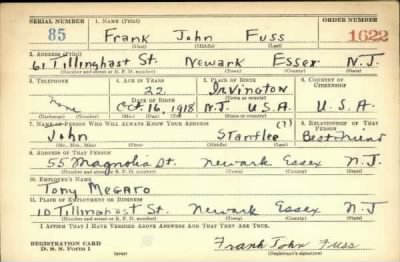 SERIAL NUMBER 1. NAME (Print) ORDER NUMBER
85 Frank John Fuss 1622
(First) (Middle) (Last)
2. ADDRESS (Print)
61 Tillinghast St. Newark Essex N.J.
(Number and street or R. F. D. number) (Town) (County) (State)
3. TELEPHONE 4. AGE IN YEARS 5. PLACE OF BIRTH 6. COUNTRY OF CITIZENSHIP
22 Irvington
none DATE OF BIRTH (Town or county)
Oct. 16, 1918 N.J. U.S.A. U.S.A.
(Mo.) (Day) (Yr.) (State or country)
7. NAME OF PERSON WHO WILL ALWAYS KNOW YOUR ADDRESS 8. RELATIONSHIP OF THAT PERSON
John Stantlee (?) Best Friend
9. ADDRESS OF THAT PERSON
55 Magnolia St. Newark Essex N.J.
(Number and street or R. F. D. number) (Town) (County) (State)
10. EMPLOYER'S NAME
Tony Megaro
11. PLACE OF EMPLOYMENT OR BUSINESS
10 Tillinghast St. Newark Essex N.J
(Number and street or R. F. D. number) (Town) (County) (State)
I AFFIRM THAT I HAVE VERIFIED ABOVE ANSWERS AND THAT THEY ARE TRUE.
REGISTRATION CARD
D. S. S. Form 1
(over)
Frank John Fuss
(Registrant's signature)